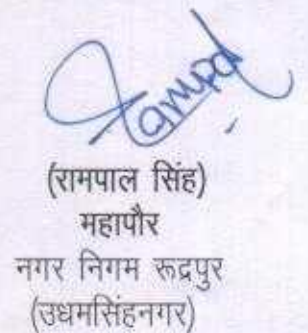 Rampal
(रामपाल सिंह)
महापौर
नगर निगम रूद्रपुर
(उधमसिंहनगर)